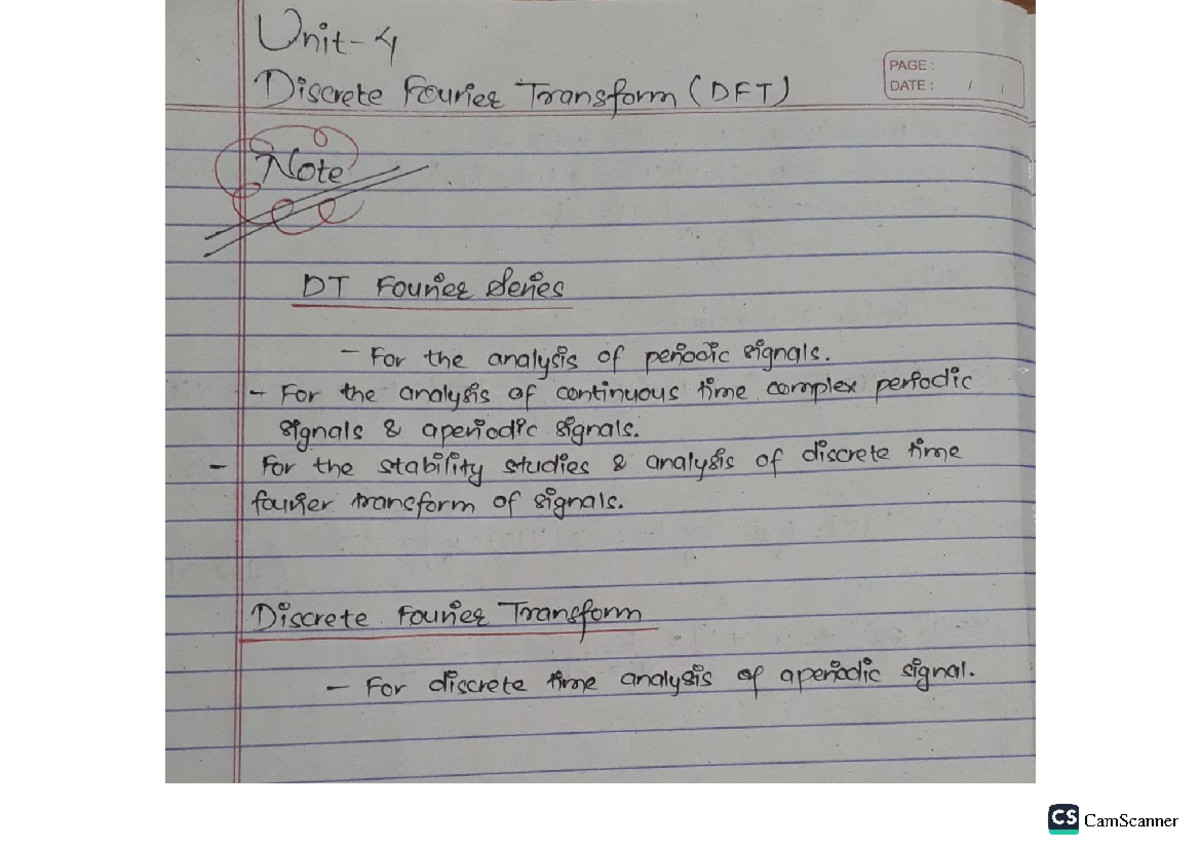 Unit-4
Discrete Fourier Transform (DFT)
PAGE :
DATE : / /
Note
DT Fourier Series
- For the analysis of periodic signals.
- For the analysis of continuous time complex periodic
signals & aperiodic signals.
- For the stability studies & analysis of discrete time
fourier transform of signals.
Discrete Fourier Transform
- For discrete time analysis of aperiodic signal.
CS CamScanner